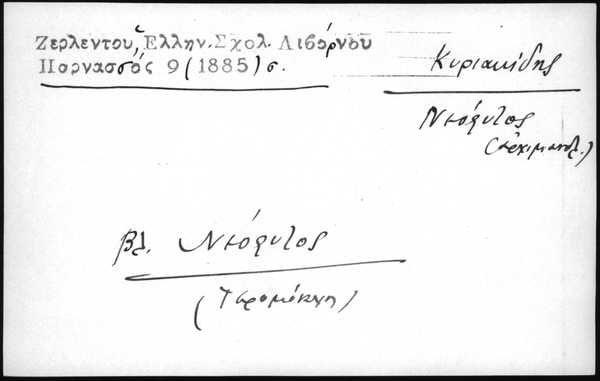 Ζερλεντου, Ἑλλην. Σχολ. Λιβόρνου
Παρνασσός 9 (1885) σ.
Κυριακίδης
Νεόφυτος
(ἀρχιμανδ.)
βλ. Νεόφυτος